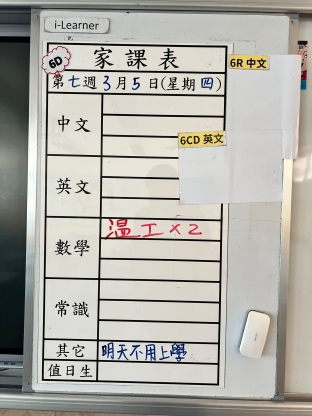 i-Learner
6D
家課表
6R 中文
第七週3月5日(星期四)
中文
6CD 英文
英文
數學 温工x2
常識
其它 明天不用上學
值日生